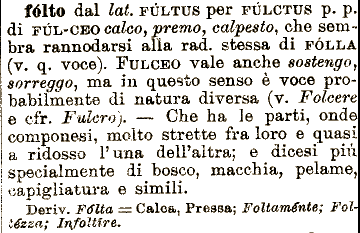 fólto dal lat. FÚLTUS per FÚLCTUS p. p.
di FÚL-CEO calco, premo, calpesto, che sem-
bra rannodarsi alla rad. stessa di FÓLLA
(v. q. voce). FULCEO vale anche sostengo,
sorreggo, ma in questo senso è voce pro-
babilmente di natura diversa (v. Folcere
e cfr. Fulcro). — Che ha le parti, onde
componesi, molto strette fra loro e quasi
a ridosso l'una dell'altra; e dicesi più
specialmente di bosco, macchia, pelame,
capigliatura e simili.
Deriv. Fólta = Calca, Pressa; Foltaménte; Fol-
tézza; Infoltire.